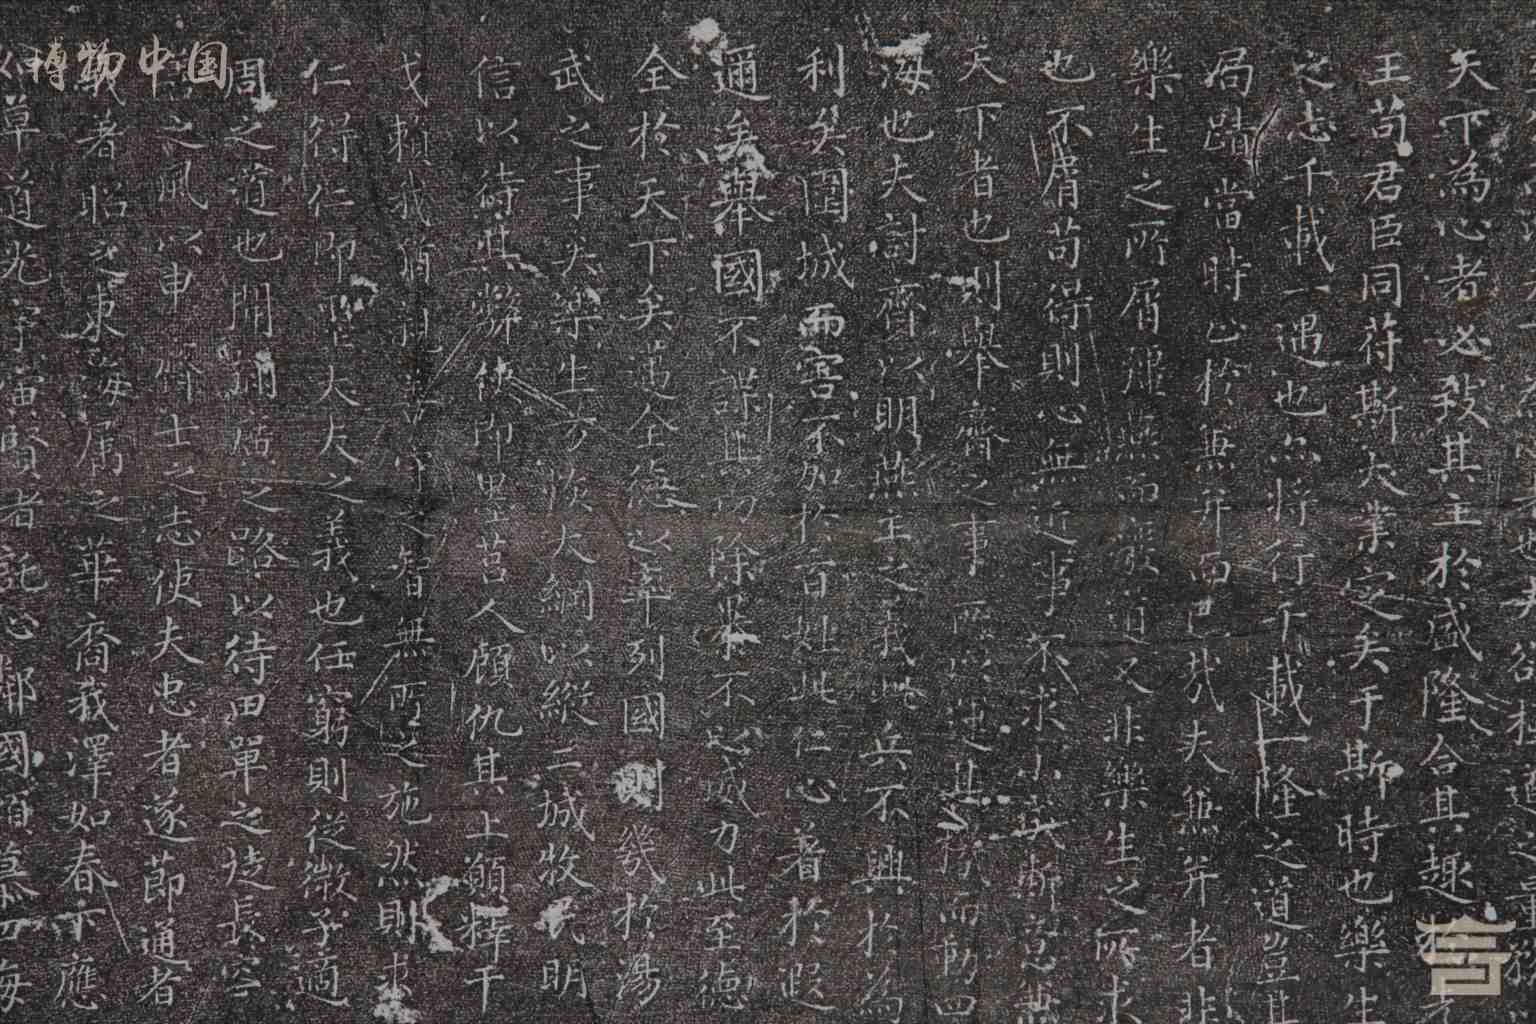 也夫欲極道之量務以
天下為心者必致其主於盛隆合其趣於先
王苟君臣同苻斯大業定矣于斯時也樂生
之志千載一遇也亦將行千載一隆之道豈其
局蹟當時止於兼并而已哉夫兼并者非
樂生之所屑彊燕而廢道又非樂生之所求
也不屑苟得則心無近事不求小成斯意兼
天下者也則舉齊之事所以運其機而動四
海也夫討齊以明燕主之義此兵不興於為
利矣圍城而害不加於百姓此仁心著於遐
邇矣舉國不謀其功除暴不以威力此至德
全於天下矣邁全德以率列國則幾於湯
武之事矣樂生方恢大綱以縱二城牧民明
信以待其弊使即墨莒人顧仇其上願釋干
戈賴我猶親善守之智無所之施然則求
仁得仁即墨大夫之義也任窮則從微子適
周之道也開彌廣之路以待田單之徒長容
善之風以申齊士之志使夫忠者遂節通者
義著昭之東海屬之華裔我澤如春下應
如草道光宇宙賢者託心鄰國傾慕四海
博物中国